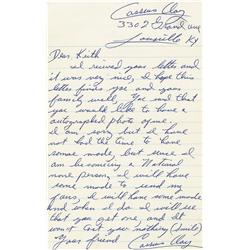 Cassius Clay
3302 Grand ave
Louisville Ky
Dear Keith
I recived your letter and
it was very nice, I hope this
letter finds you and your
family well, You said that
you would like to have a
autographed photo of me.
I am sorry but I have
not had the time to have
some made, but since I
am be someting a Natural
more person, I will have
some made to send my
fans, I will have some made
and when I do I will see
that you get one, and it
wont cost your nothing (smile)
Your friend Cassius Clay